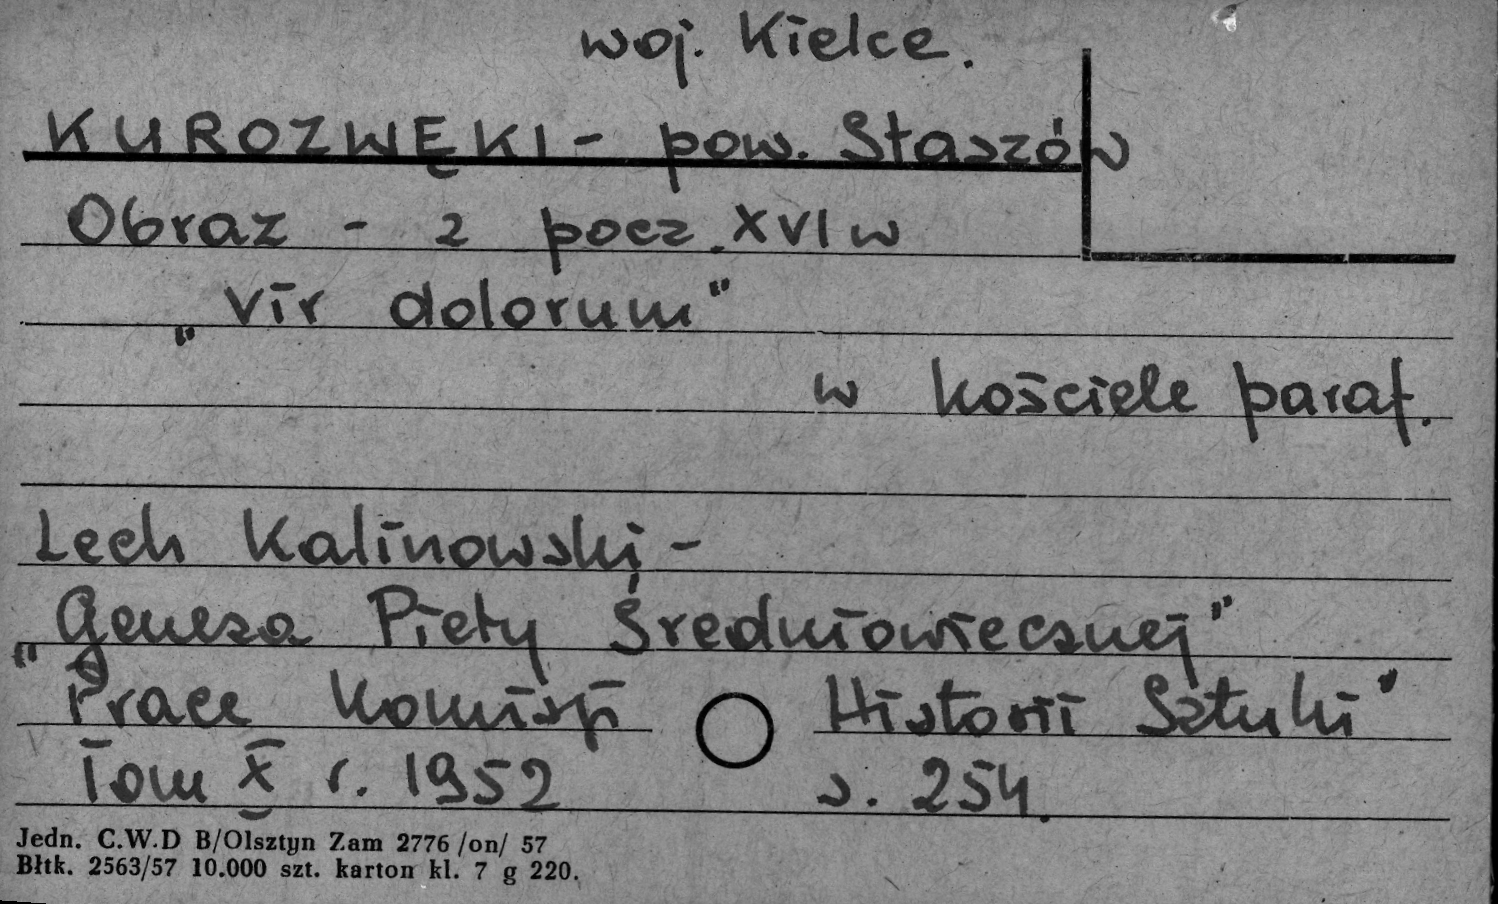 woj. Kielce.
KUROZWĘKI - pow. Staszów
Obraz - z pocz. XVI w
„Vir dolorum"
w kościele paraf.
Lech Kalinowski -
„Geneza Piety Średniowiecznej"
Prace Komisji Historii Sztuki"
Tom X r. 1952 s. 254.
Jedn. C.W.D B/Olsztyn Zam 2776 /on/ 57
Błtk. 2563/57 10.000 szt. karton kl. 7 g 220.